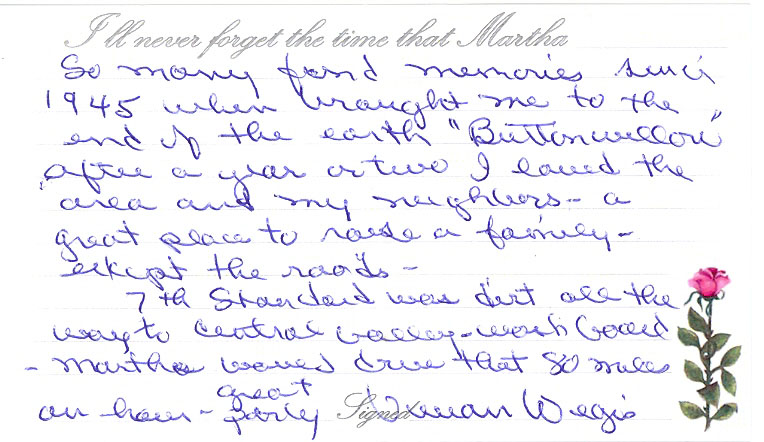 I'll never forget the time that Martha
So many fond memories since
1945 when brought me to the
end of the earth "Buttonwillow"
after a year or two I loved the
area and my neighbors - a
great place to raise a family -
except the roads -
7th Standard was dirt all the
way to central valley - wash board
- Martha would drive that 80 miles
an hour - great party Signed Wegis